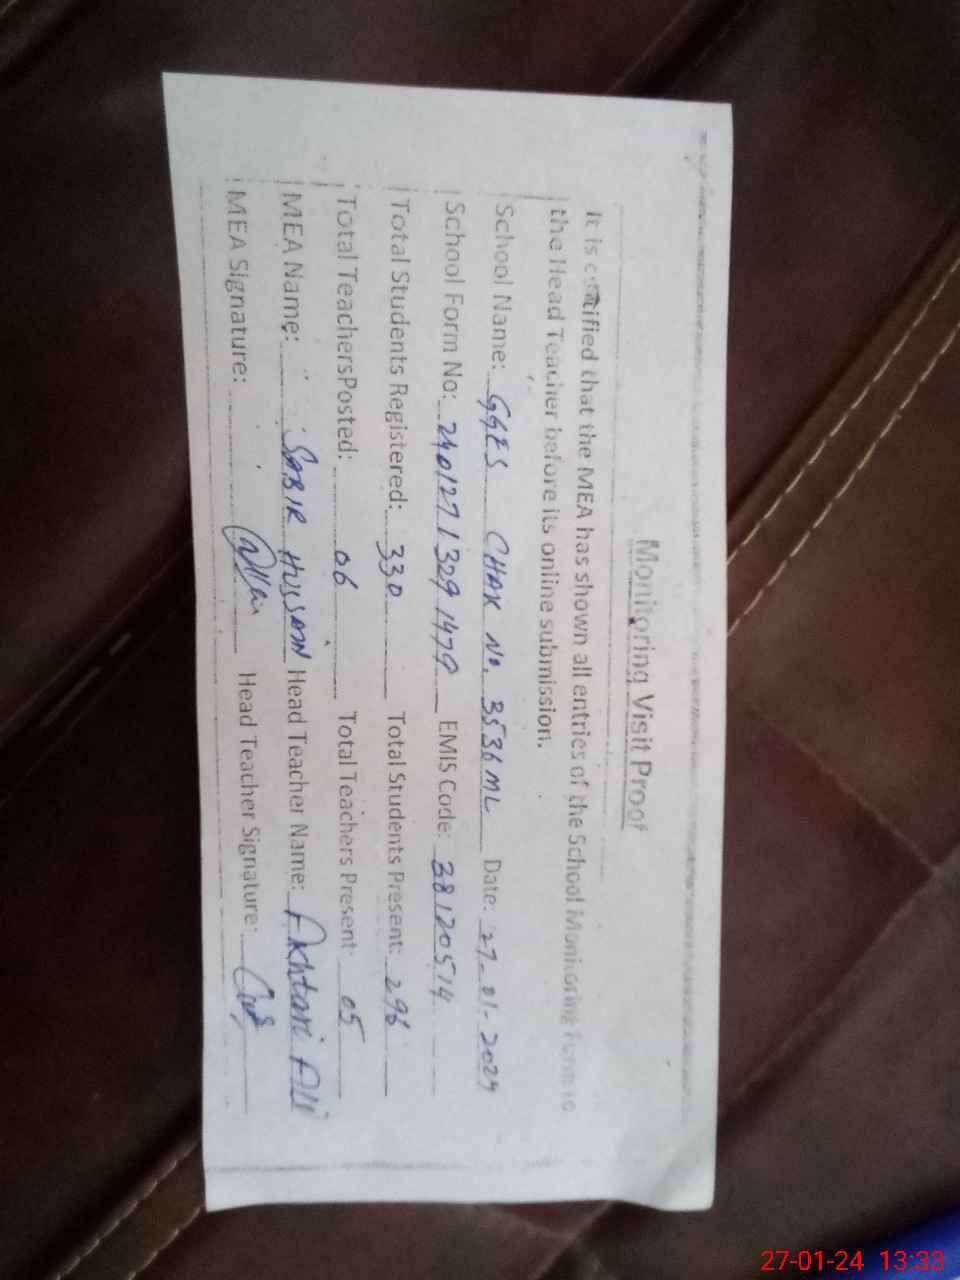 Monitoring Visit Proof
It is certified that the MEA has shown all entries of the School Monitoring Form to
the Head Teacher before its online submission.
School Name: GGES CHAK No. 3536ML Date: 27-01-2024
School Form No: 240127 1329 1479 EMIS Code: 38120514
Total Students Registered: 330 Total Students Present: 296
Total TeachersPosted: 06 Total Teachers Present: 05
MEA Name: SABIR HUSSAIN Head Teacher Name: Akhtari Ali
MEA Signature: Head Teacher Signature:
27-01-24 13:33